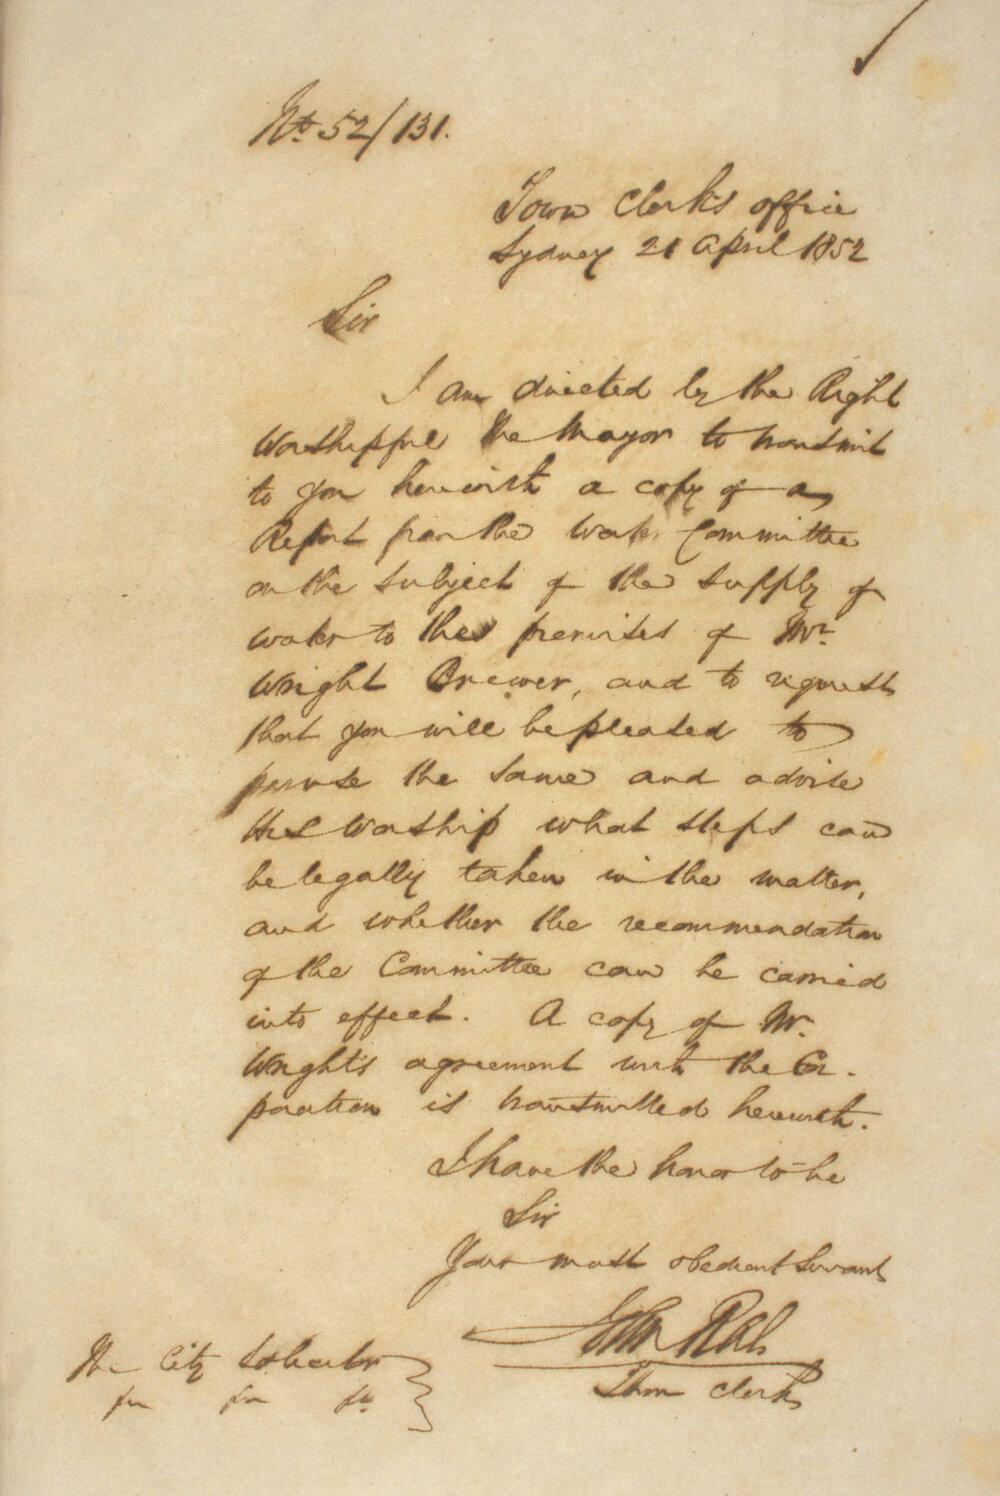 No 52/131.
Town Clerk's office
Sydney 21 April 1852
Sir
I am directed by the Right
Worshipful the Mayor to transmit
to you herewith a copy of a
Report from the Water Committee
on the subject of the supply of
water to the premises of Mr.
Wright Brewer, and to request
that you will be pleased to
peruse the same and advise
His Worship what steps can
be legally taken in the matter,
and whether the recommendation
of the Committee can be carried
into effect. A copy of Mr.
Wright's agreement with the Cor-
poration is transmitted herewith.
I have the honor to be
Sir
Your most obedient Servant
John Rae
Town Clerk
The City Solicitor